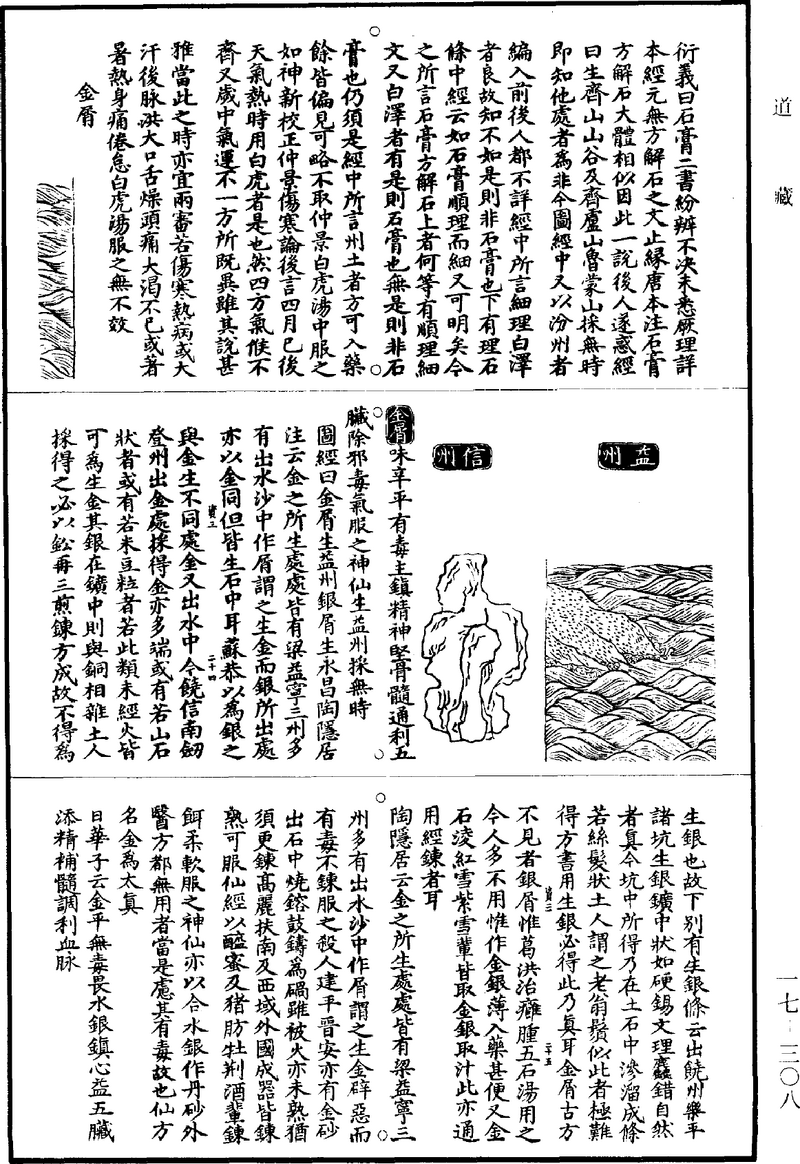 道藏
衍義曰石膏二書紛辨不決未悉厥理詳
本經元無方解石之文止緣唐本注石膏
方解石大體相似因此一說後人遂惑經
曰生齊山山谷及齊盧山魯蒙山採無時
即知他處者為非今圖經中又以汾州者
編入前後人都不詳經中所言細理白澤
者良故知不如是則非石膏也下有理石
條中經云如石膏順理而細又可明矣今
之所言石膏方解石上者何等有順理細
文又白澤者有是則石膏也無是則非石
膏也仍須是經中所言州土者方可入藥
餘皆偏見可略不取仲景白虎湯中服之
如神新校正仲景傷寒論後言四月已後
天氣熱時用白虎者是也然四方氣候不
齊又歲中氣運不一方所既異雖其說甚
雅當此之時亦宜兩審若傷寒熱病或大
汗後脉洪大口舌燥頭痛大渴不已或著
暑熱身痛倦怠白虎湯服之無不效
金屑
益州
信州
金屑味辛平有毒主鎮精神堅骨髓通利五
臟除邪毒氣服之神仙生益州採無時
圖經曰金屑生益州銀屑生永昌陶隱居
注云金之所生處處皆有梁益寧三州多
有出水沙中作屑謂之生金而銀所出處
亦以金同但皆生石中耳蘇恭以為銀之
資二
二十四
與金生不同處金又出水中今饒信南劒
登州出金處採得金亦多端或有若山石
狀者或有若米豆粒者若此類未經火皆
可為生金其銀在鑛中則與銅相雜土人
採得之必以鈆再三煎鍊方成故不得為
生銀也故下別有生銀條云出饒州樂平
諸坑生銀鑛中狀如硬錫文理麤錯自然
者真今坑中所得乃在土石中滲溜成條
若絲髮狀土人謂之老翁鬚似此者極難
得方書用生銀必得此乃真耳金屑古方
資三
二十五
不見者銀屑惟葛洪治癰腫五石湯用之
今人多不用惟作金銀薄入藥甚便又金
石凌紅雪紫雪輩皆取金銀取汁此亦通
用經鍊者耳
陶隱居云金之所生處處皆有梁益寧三
州多有出水沙中作屑謂之生金辟惡而
有毒不鍊服之殺人建平晉安亦有金砂
出石中燒鎔鼓鑄為碢雖被火亦未熟猶
須更鍊高麗扶南及西域外國成器皆鍊
熟可服仙經以醯蜜及猪肪牡荆酒輩鍊
餌柔軟服之神仙亦以合水銀作丹砂外
醫方都無用者當是慮其有毒故也仙方
名金為太真
日華子云金平無毒畏水銀鎮心益五臟
添精補髓調利血脉
一七－三〇八